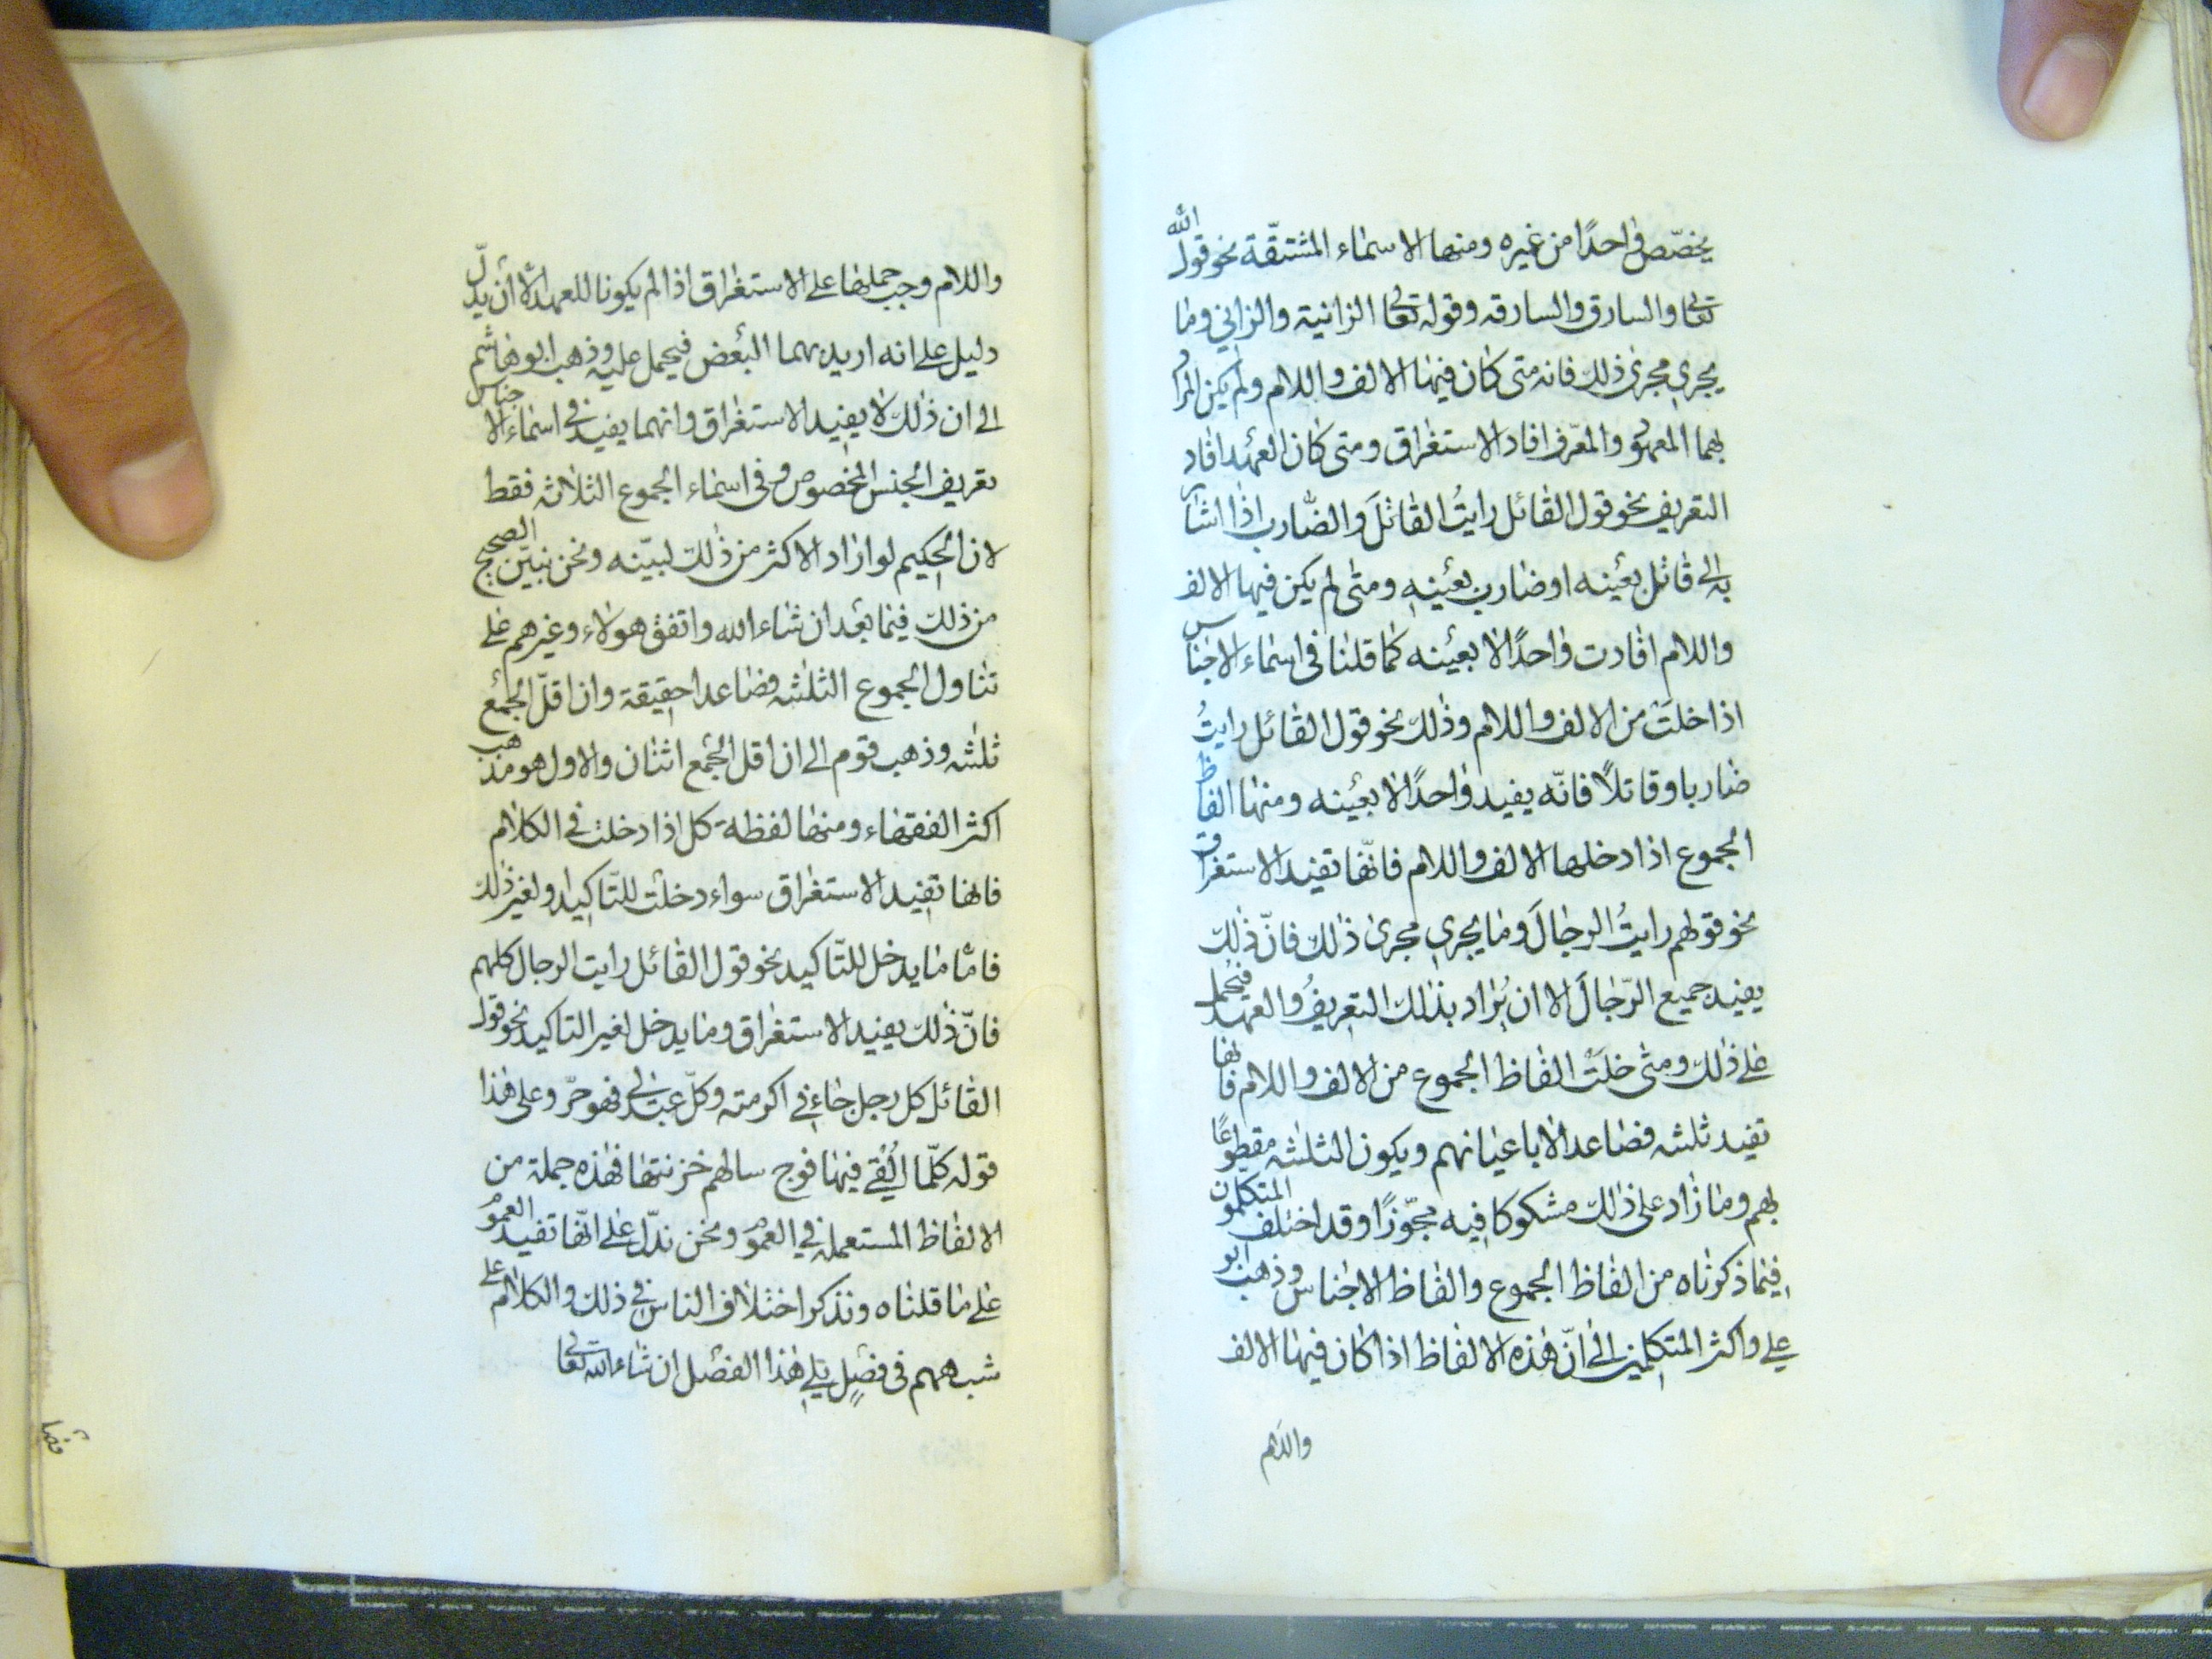 يخصّص واحدًا من غيره ومنها الاسماء المشتقّة نحو قول الله
تعالى والسارق والسارقه وقوله تعالى الزانية والزاني وما
يجري مجرى ذلك فانه متى كان فيها الالف واللام ولم يكن المراد
بهما المعهود والمعرّف افاد الاستغراق ومتى كان العهد افاد
التعريف نحو قول القائل رايتُ القاتلَ والضّارب اذا اشار
به الى قاتل بعينه او ضارب بعينه ومتى لم يكن فيها الالف
واللام افادت واحدًا لا بعينه كما قلنا في اسماء الاجناس
اذا خلَتْ من الالف واللام وذلك نحو قول القائل رايتُ
ضاربا وقاتلاً فانّه يفيد واحدًا لا بعينه ومنها الفاظ
الجموع اذا دخلها الالف واللام فانّها تفيد الاستغراق
نحو قولهم رايتُ الرجالَ وما يجري مجرى ذلك فانّ ذلك
يفيد جميع الرّجالَ الا ان يُراد بذلك التعريفُ والعهد فيحمل
على ذلك ومتى خلَتْ الفاظ الجموع من الالف واللام فانها
تفيد ثلثه فصاعدا لا باعيانهم ويكون الثلثه مقطوعًا
بهم وما زاد على ذلك مشكوكا فيه مجوّزًا وقد اختلف المتكلمون
فيما ذكرناه من الفاظ الجموع والفاظ الاجناس وذهب ابو
علي واكثر المتكلمين الى انّ هذه الالفاظ اذا كان فيها الالف
واللام
واللام وجب حملها على الاستغراق اذا لم يكونا للعهد الّا ان يدلّ
دليل على انه اريد بهما البعض فيحمل عليه وذهب ابو هاشم
الى ان ذلك لا يفيد الاستغراق وانهما يفيد في اسماء الاجناس
تعريف الجنس المخصوص وفى اسماء الجموع الثلاثه فقط
لان الحكيم لو اراد الاكثر من ذلك لبيّنه ونحن نبيّن الصحيح
من ذلك فيما بعد ان شاء الله واتفق هولاء وغيرهم على
تناول الجموع الثلثه فصاعدا حقيقة وان اقلّ الجمع
ثلثه وذهب قوم الى ان اقل الجمع اثنان والاول هو مذهب
اكثر الفقهاء ومنها لفظة كل اذا دخلت في الكلام
فانها تفيد الاستغراق سواء دخلت للتّاكيد او لغير ذلك
فامّا ما يدخل للتّاكيد نحو قول القائل رايت الرجال كلهم
فانّ ذلك يفيد الاستغراق وما يدخل لغير التاكيد نحو قول
القائل كل رجل جاءني اكرمته وكلّ عبد لي فهو حرّ وعلى هذا
قوله كلّما اُلقي فيها فوج سالهم خزنتها فهذه جملة من
الالفاظ المستعملة في العموم ونحن ندّل على انّها تفيد العموم
على ما قلناه ونذكر اختلاف الناس في ذلك والكلام على
شبههم فى فصل يلي هذا الفصل ان شاء الله تعالى
فصل